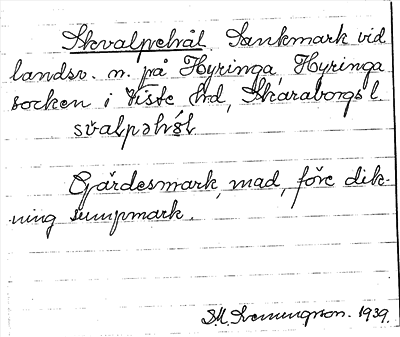 Skvalpehål. Sankmark vid
landsv. n. på Hyringa, Hyringa
socken i Viste hd, Skaraborgs l.
Gärdesmark, mad, före dik-
ning sumpmark.
1939.